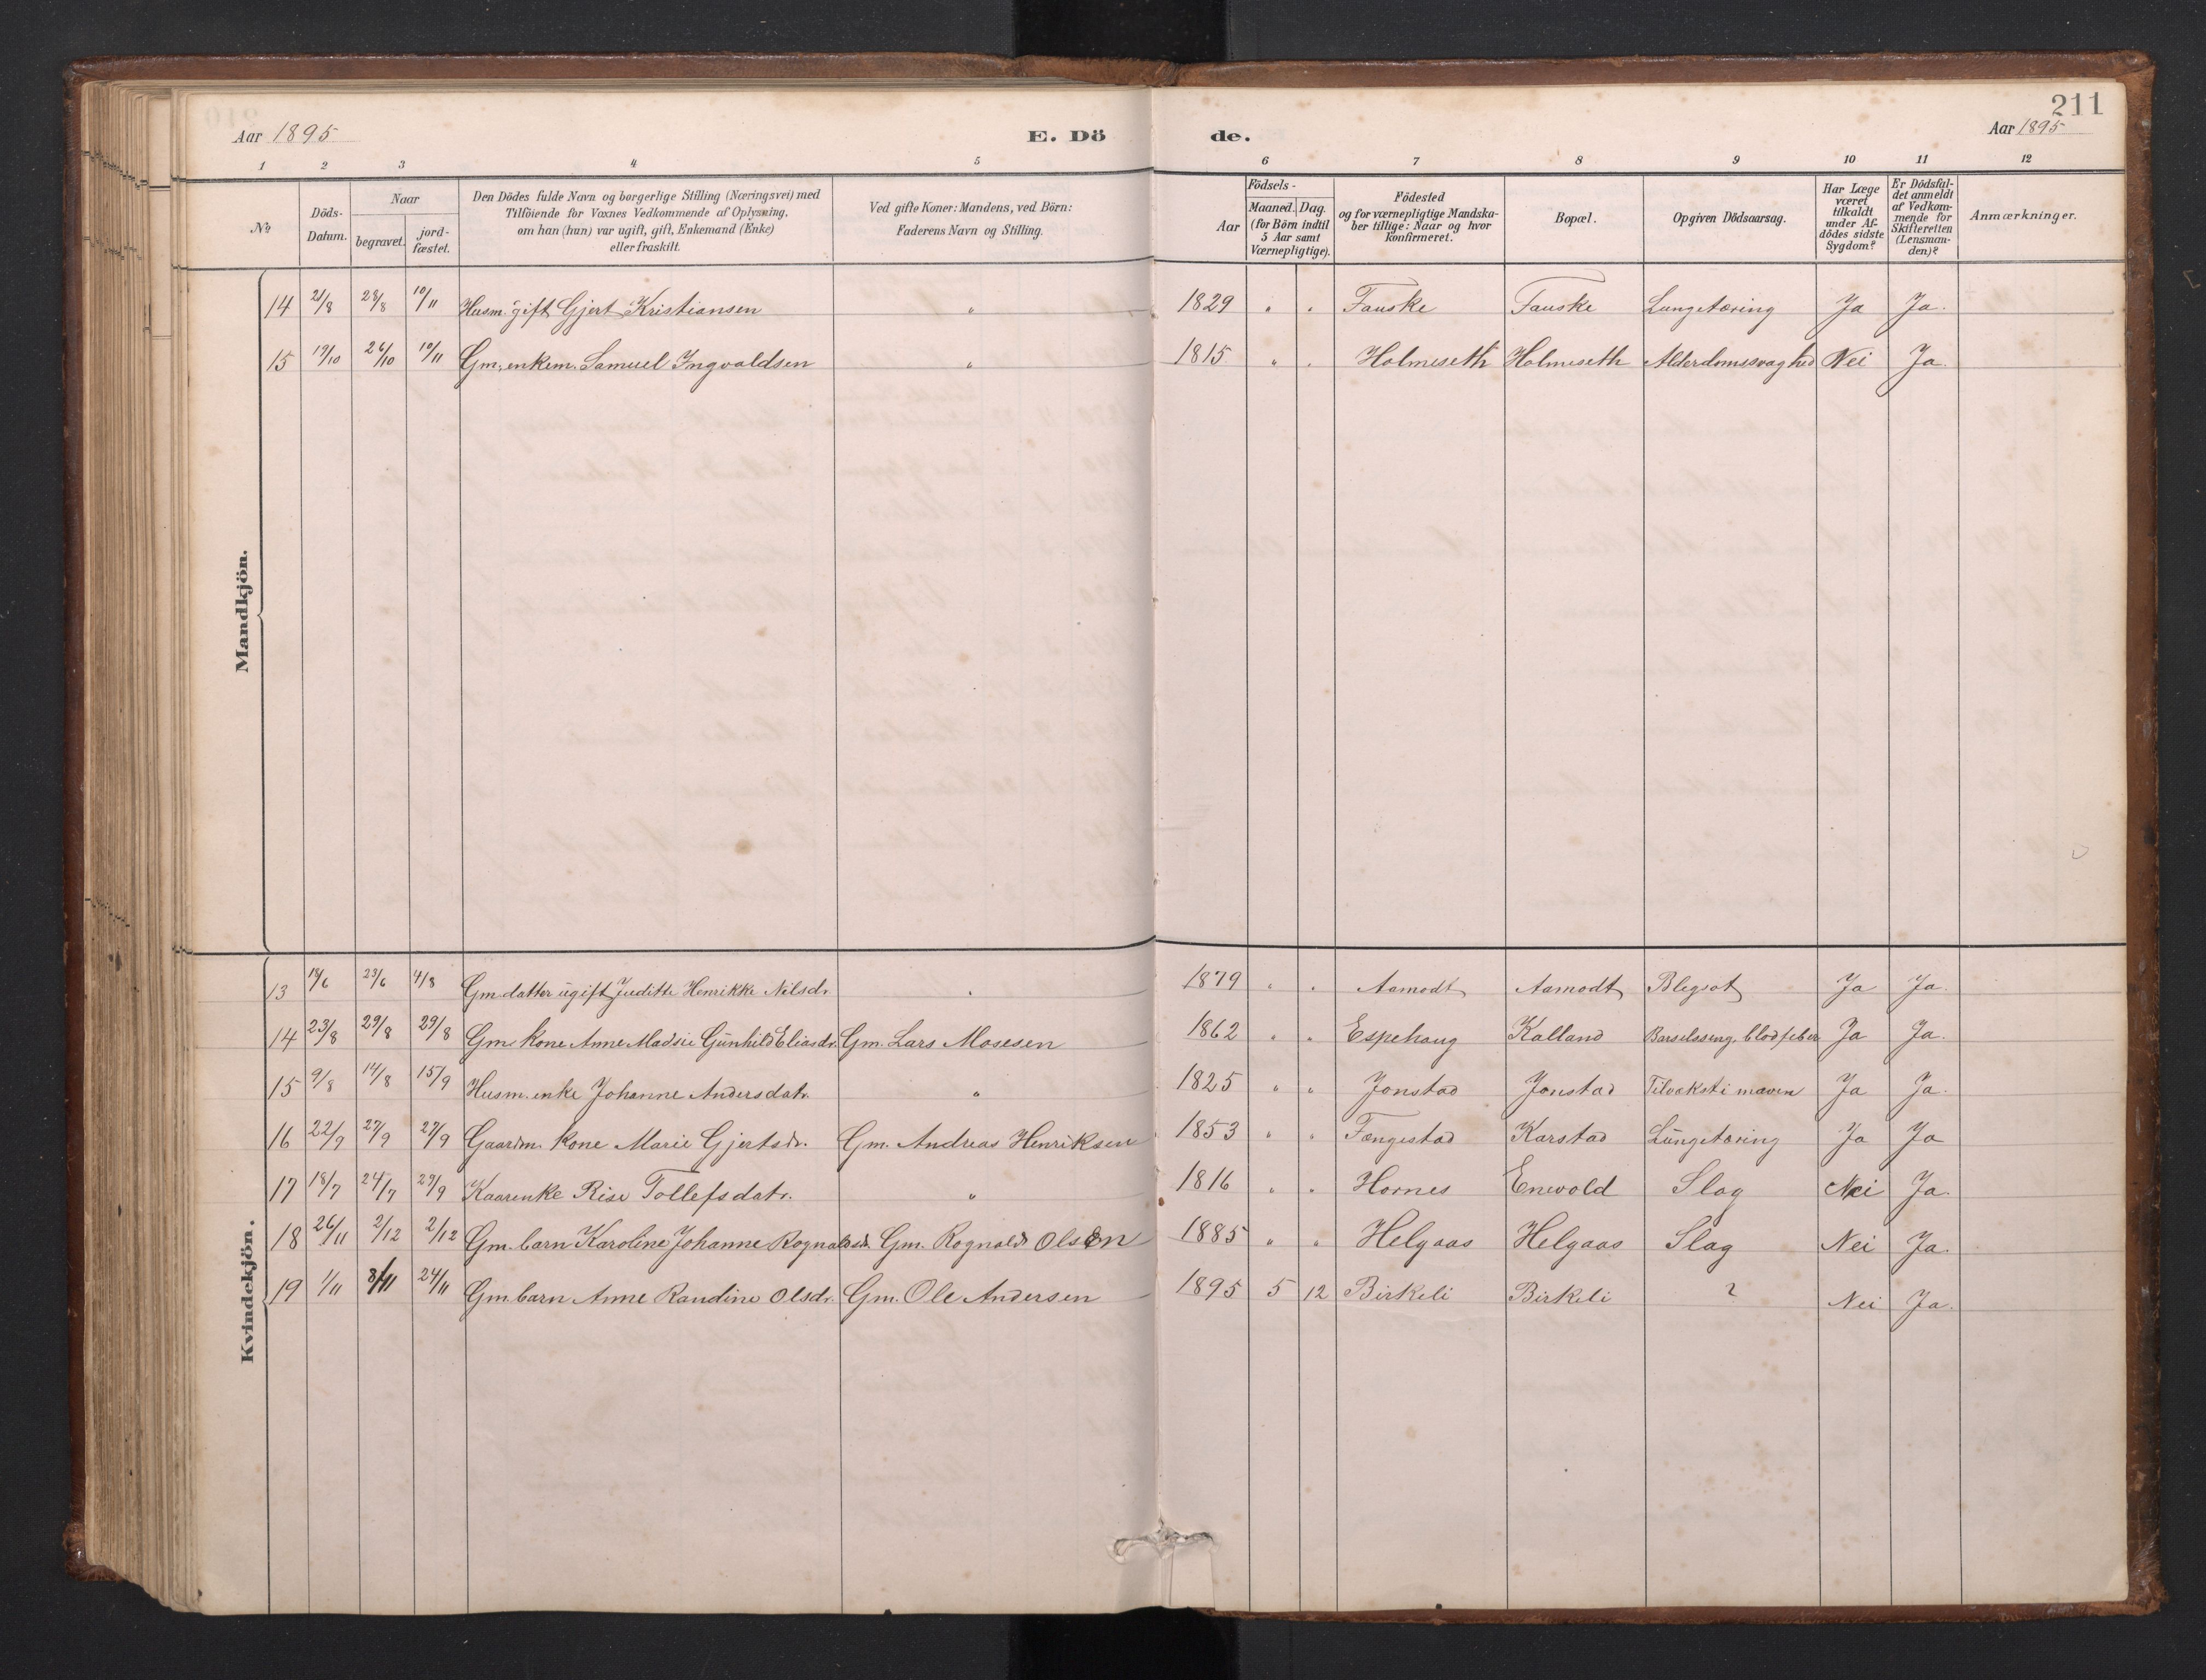 211
Aar 1895 E. Dö de. Aar 1895
1 2 3 4 5 6 7 8 9 10 11 12
No
Döds-
Datum.
Naar
begravet.
jord-
fæstet.
Den Dödes fulde Navn og borgerlige Stilling (Næringsvei) med
Tilföiende for Voxnes Vedkommende af Oplysning,
om han (hun) var ugift, gift, Enkemand (Enke)
eller fraskilt.
Ved gifte Koner: Mandens, ved Börn:
Faderens Navn og Stilling.
Födsels-
Aar
Maaned. Dag.
(for Börn indtil
5 Aar samt
Værnepligtige).
Födested
og for værnepligtige Mandska-
ber tillige: Naar og hvor
konfirmeret.
Bopæl.
Opgiven Dödsaarsag.
Har Læge
været
tilkaldt
under Af-
dödes sidste
Sygdom?
Er Dödsfal-
det anmeldt
af Vedkom-
mende for
Skifteretten
(Lensman-
den)?
Anmærkninger.
Mandkjön.
14 21/8 28/8 10/11 Husm. gift Gjert Kristiansen " 1829 " " Fauske Fauske Lungetæring Ja Ja.
15 19/10 26/10 10/11 Gm. enkem. Samuel Ingvaldsen " 1815 " " Holmeseth Holmeseth Alderdomssvaghed Nei Ja.
Kvindekjön.
13 18/6 23/6 4/8 Gm. datter ugift Juditte Henrikke Nilsdr. " 1879 " " Aamodt Aamodt Blegsot Ja Ja.
14 23/8 29/8 29/8 Gm. kone Anne Madsie Gunhild Eliasdr. Gm. Lars Mosesen 1862 " " Espehaug Kalland Barselsseng, blodfeber Ja Ja.
15 9/8 14/8 15/9 Husm. enke Johanne Andersdatr. " 1825 " " Jonstad Jonstad Tilvækst i maven Ja Ja.
16 22/9 27/9 27/9 Gaardm. kone Marie Gjertsdr. Gm. Andreas Henriksen 1853 " " Fængestad Karstad Lungetæring Ja Ja
17 18/7 24/7 29/9 Kaarenke Rise Tollefsdatr. " 1816 " " Hornes Enevold Slag Nei Ja.
18 26/11 2/12 2/12 Gm. barn Karoline Johanne Rognaldsdr. Gm. Rognald Olsen 1885 " " Helgaas Helgaas Slag Nei Ja.
19 1/11 8/11 24/11 Gm. barn Anne Randine Olsdr. Gm. Ole Andersen 1895 5 12 Birkeli Birkeli ? Nei Ja.